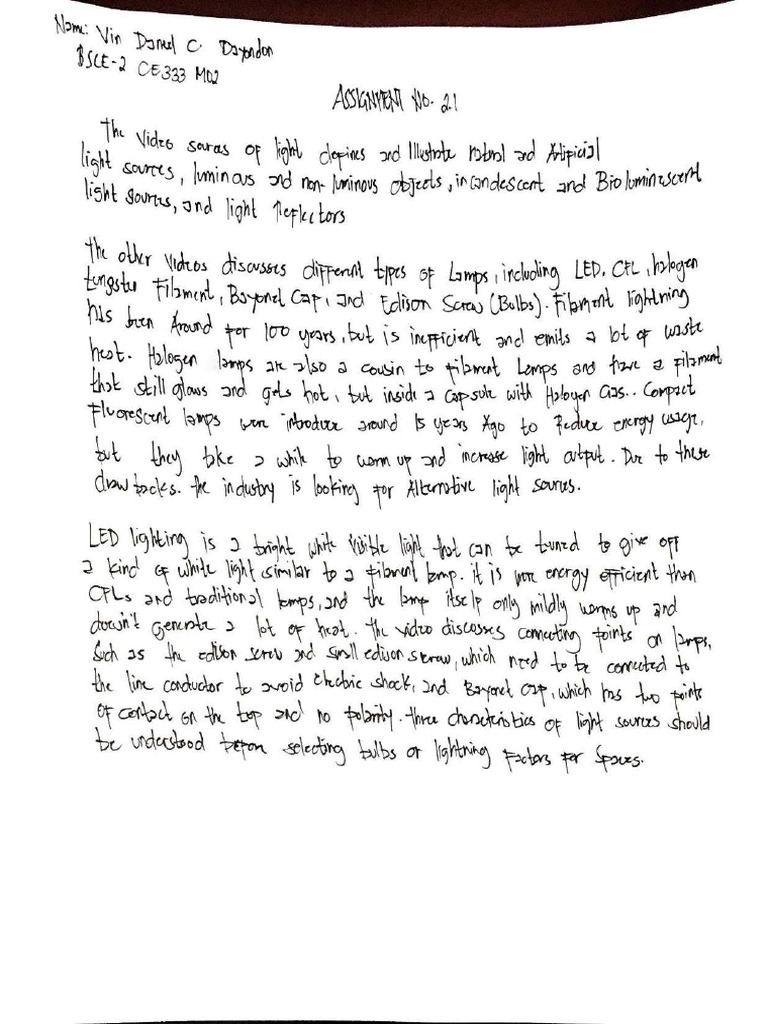 Name: Vin Daniel C. Dayondon
BSCE-2 CE333 M02
ASSIGNMENT No. 2.1
The Video sources of light defines and Illustrate natural and Artificial
light sources, luminous and non-luminous objects, incandescent and Bioluminescent
light sources, and light Reflectors
The other Videos discusses different types of Lamps, including LED, CFL, halogen
tungsten Filament, Bayonet Cap, and Edison Screw (Bulbs). Filament lightning
has been Around for 100 years, but is inefficient and emits a lot of waste
heat. Halogen lamps are also a cousin to filament Lamps and have a filament
that still glows and gets hot, but inside a capsule with Halogen Gas.. Compact
Fluorescent lamps were introduce around 15 years Ago to Reduce energy usage,
but they take a while to warm up and increase light output. Due to these
drawbacks. the industry is looking for Alternative light sources.
LED lighting is a bright white visible light that can be tuned to give off
a kind of white light similar to a filament lamp. it is more energy efficient than
CFLs and traditional lamps, and the lamp itself only mildly warms up and
doesn't generate a lot of heat. The video discusses connecting points on lamps,
Such as the edison screw and small edison screw, which need to be connected to
the line conductor to avoid electric shock, and Bayonet cap, which has two points
of contact on the top and no polarity. three characteristics of light sources should
be understood before selecting bulbs or lightning factors for Spaces.